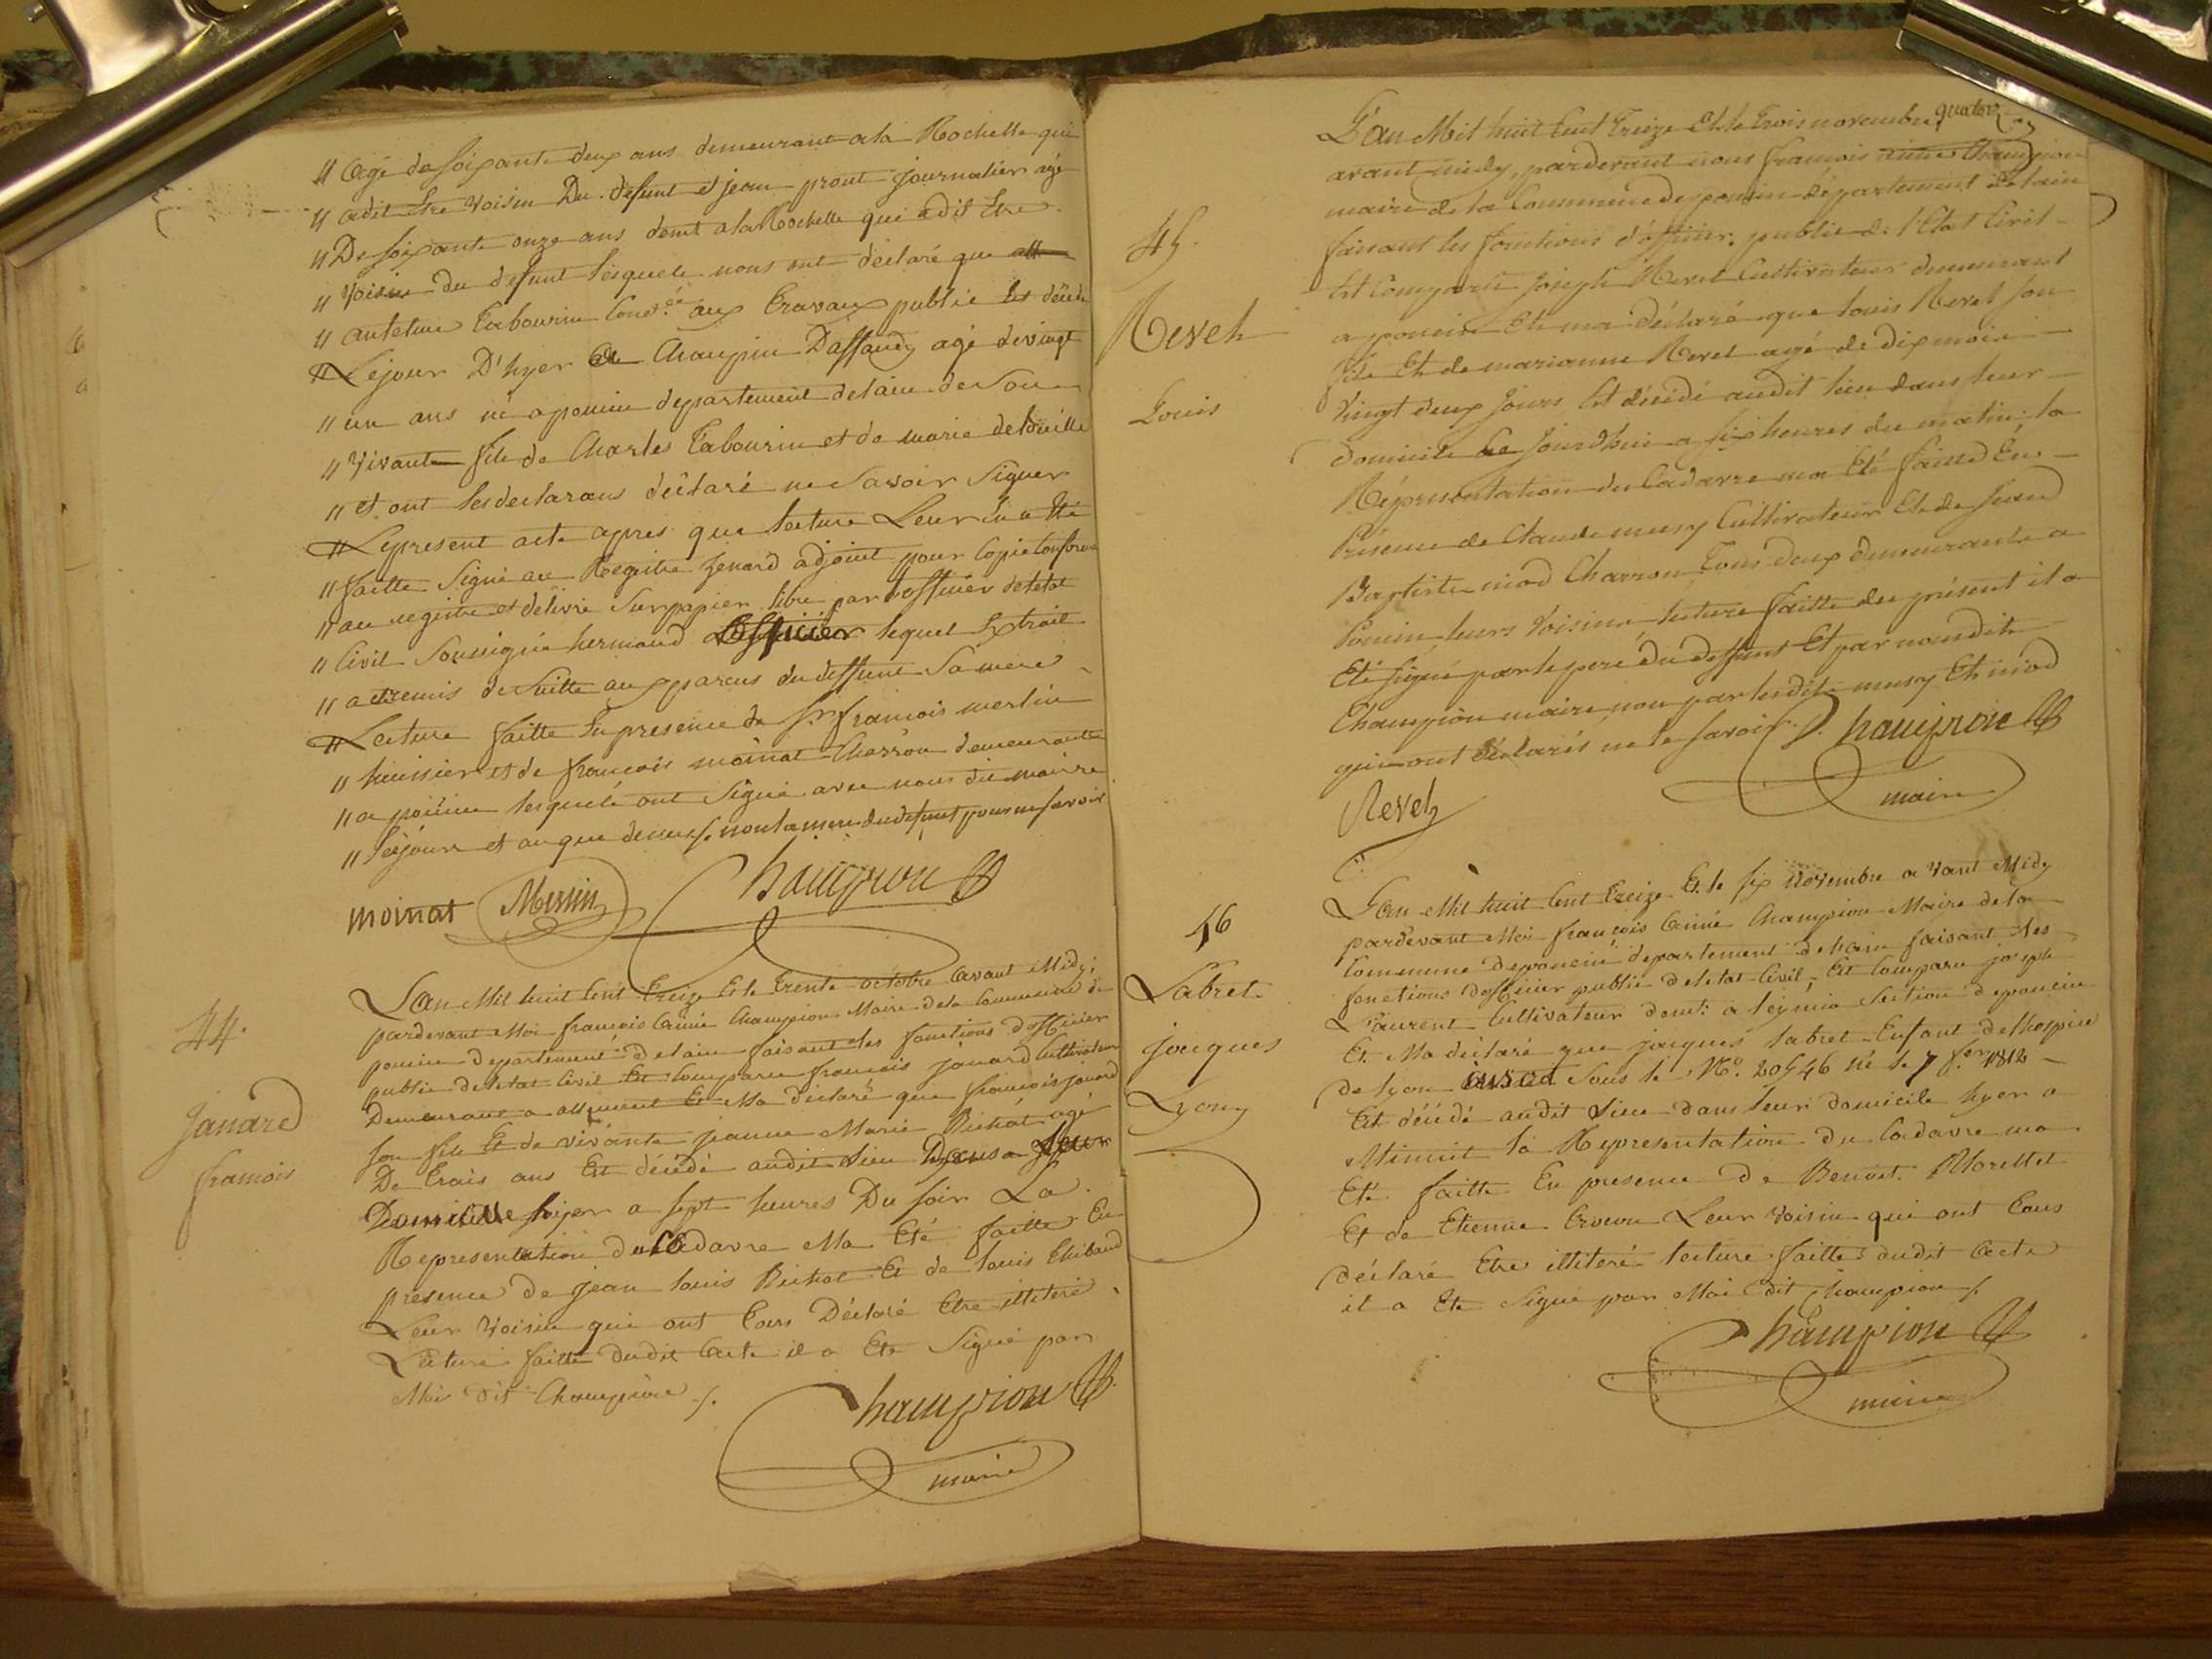 " agé de soixante deux ans demeurant a la Rochelle qui
" a dit être voisin Du défunt et jean prout journalier agé
" De soixante onze ans demt a la Rochelle qui a dit Etre
" voisin du defunt lesquels nous ont déclaré que
" antelme Tabourin Cond.é aux travaux public est décédé
" Le jour D'hyer agé de vingt
" un ans né a poncin departement de lain de son
" vivant fils de Charles Tabourin et de marie
" et ont les declarans déclaré ne Savoir Signer
" Le present acte apres que lecture Leur en a été
" faitte Signé au Registre adjoint pour Copie Conforme
" au registre et délivré Sur papier libre par l'officier de letat
" Civil Soussigné hermand officier lequel Extrait
" a été remis de Suitte aux parens du deffunt Sa mere
" Lecture faitte En presence de Sr françois merlin
" huissier et de françois moinat Charron demeurants
" a poncin lesquels ont Signé avec nous dit maire
" les jours et an que dessus non la mere du defunt pour ne savoir
moinat Merlin Champion
44.
Janard
francois
L'an Mil huit Cent Treize Et le Trente octobre avant Midy
pardevant Moi françois Aimé Champion Maire de la Commune de
poncin departement de lain faisant les fonctions D'officier
public de letat Civil Est Comparu francois janard Cultivateur
Demeurant a Et Ma déclaré que françois janard
son fils Et de vivante jeanne Marie Bichat agé
De trois ans Est décédé audit Lieu Dans Leur
Domicille hyer a Sept heures Du soir La
Representation du Cadavre Ma Eté faitte En
presence de jean Louis Bichat Et de Louis Thibaud
Leur Voisin qui ont Tous Déclaré Etre illiteré
Lecture faitte dudit acte il a Eté Signé par
Moi dit Champion ./.
Champion
maire
45.
Revel
Louis
L'an Mil huit Cent Treize Et le Trois novembre
avant midy, pardevant nous francois aimé Champion
maire de la Commune de poncin département de lain
faisant les fonctions d'officier public de l'Etat Civil
Est Comparu Joseph Revel Cultivateur demeurant
a poncin Et m'a déclaré que Louis Revel son
fils Et de marianne Revel agé de dix mois
vingt deux jours Est décédé audit lieu dans leur
domicile ce jourd'hui a six heures du matin la
Réprésentation du Cadavre m'a Eté faitte En
Présence de Claude musy Cultivateur Et de Jean
Baptiste niod Charron Tous deux demeurants a
Poncin leurs voisins, lecture faitte du présent il a
Eté signé par le pere du deffunt Et par nous dit
Champion maire non par lesdits musy Et niod
qui ont déclarés ne le savoir. Champion
maire
Revel
46
Labret
jacques
Lyon
L'an Mil huit Cent Treize Et le six Novembre avant Midy
pardevant Moi françois Aimé Champion Maire de la
Commune de poncin departement de lain faisant les
fonctions D'officier public de letat Civil, Est Comparu joseph
Laurent Cultivateur demt. a leymia Section de poncin
Et Ma déclaré que jacques labret Enfant de lhospice
de lyon Sous le No. 20546 né le 7 1812
Est décédé audit Lieu dans leur domicile hyer a
Minuit la Representation du Cadavre ma
Eté faitte En presence De Benoit Morettet
Et de Etienne Leur voisin qui ont Tous
déclaré Etre illiteré lecture faitte dudit acte
il a Eté Signé par Moi dit Champion ./.
Champion
maire